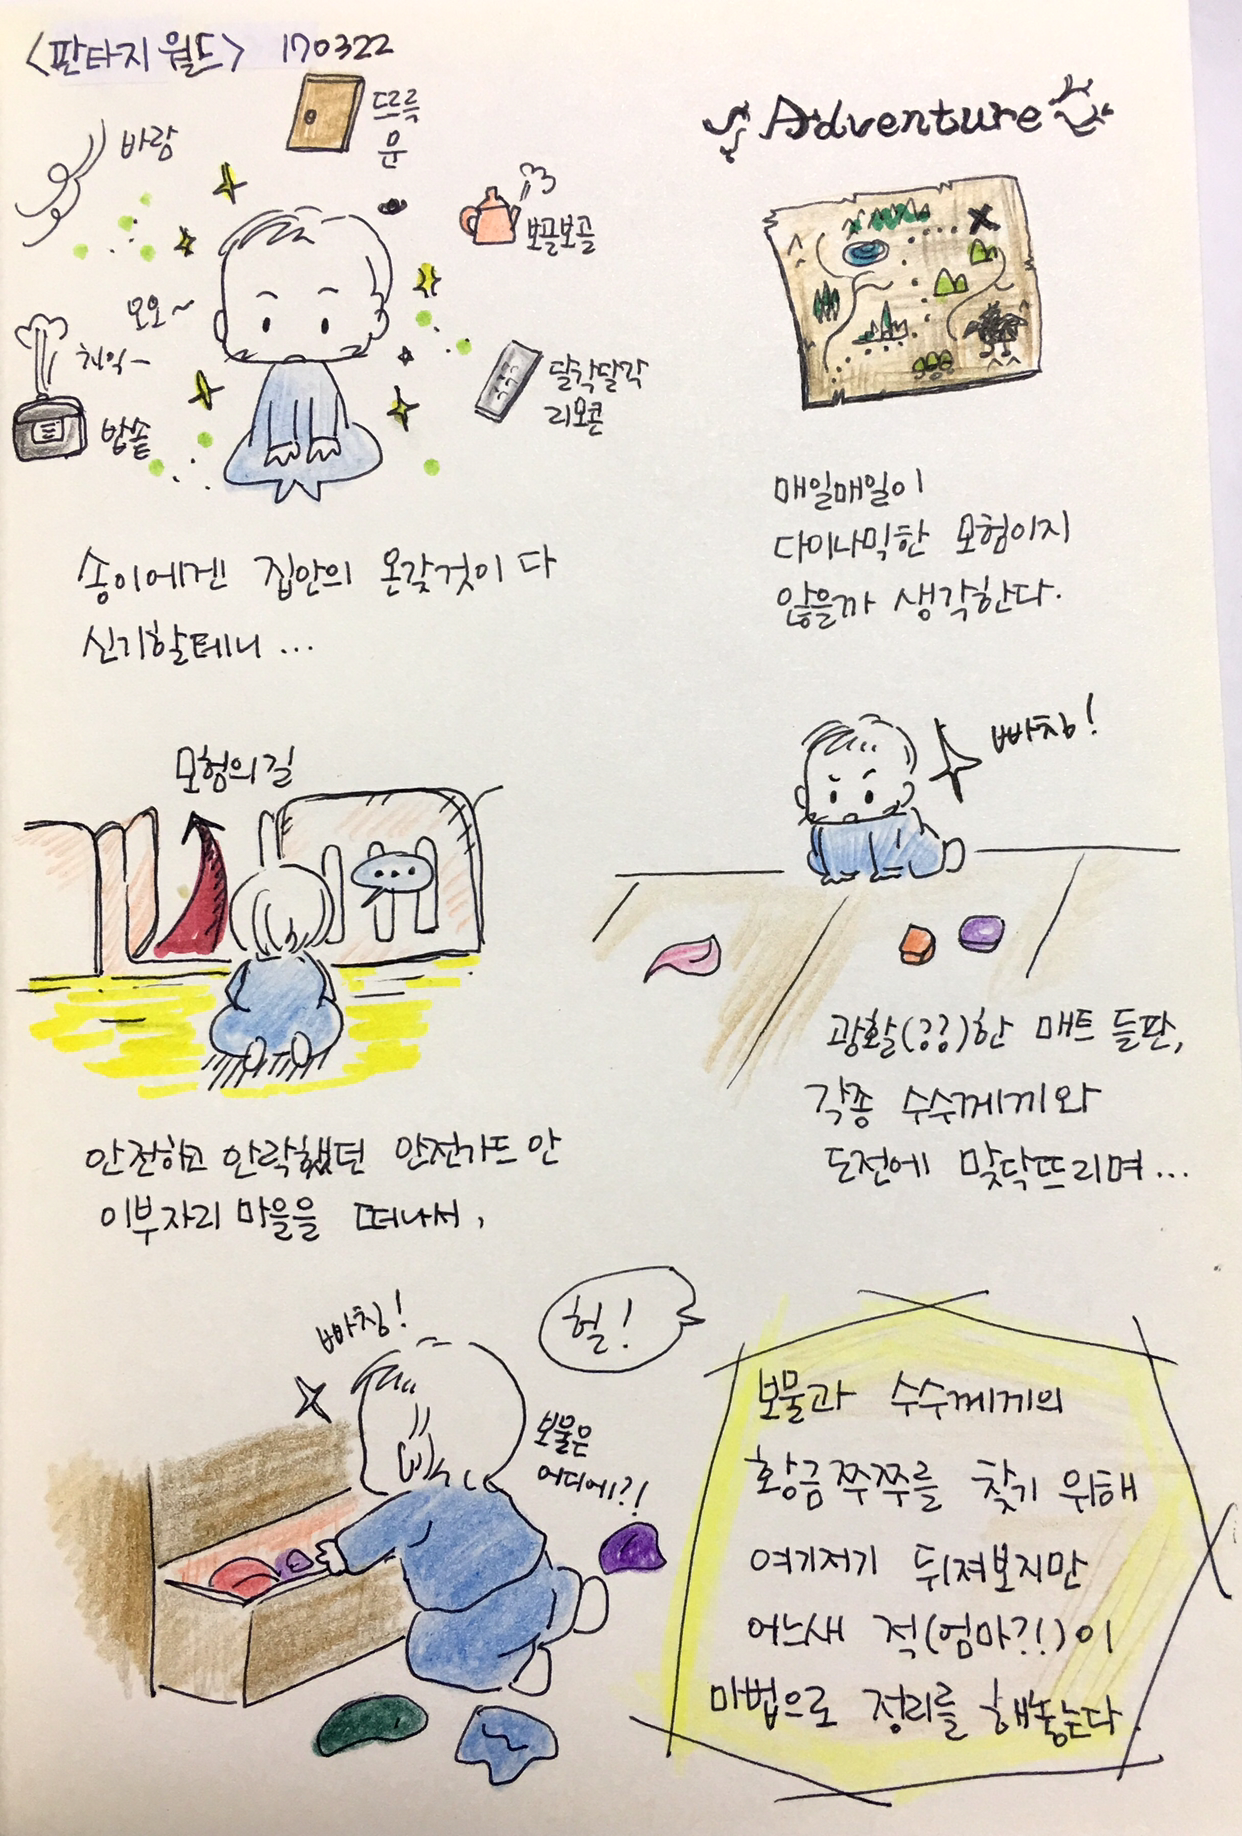 <판타지 월드> 170322
바람
드르륵
문
보글보글
오오~
치익-
밥솥
달칵달칵
리모콘
송이에겐 집안의 온갖것이 다
신기할테니...
Adventure
매일매일이
다이나믹한 모험이지
않을까 생각한다.
모험의 길
...
안전하고 안락했던 안전가드 안
이부자리 마을을 떠나서,
빠칭!
광활(??)한 매트 들판,
각종 수수께끼와
도전에 맞닥뜨리며...
빠칭!
헐!
보물은
어디에?!
보물과 수수께끼의
황금쭈쭈를 찾기 위해
여기저기 뒤져보지만
어느새 적(엄마?!)이
마법으로 정리를 해놓는다.